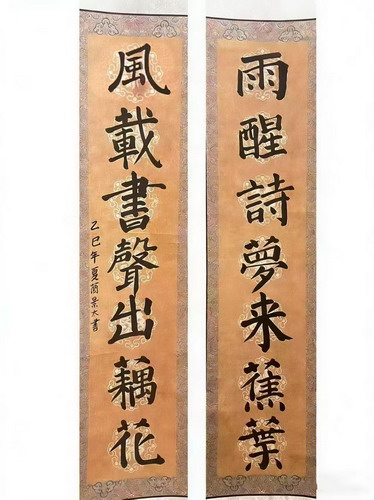 雨醒詩夢来蕉葉
風載書聲出藕花
乙巳年夏蔄景大書